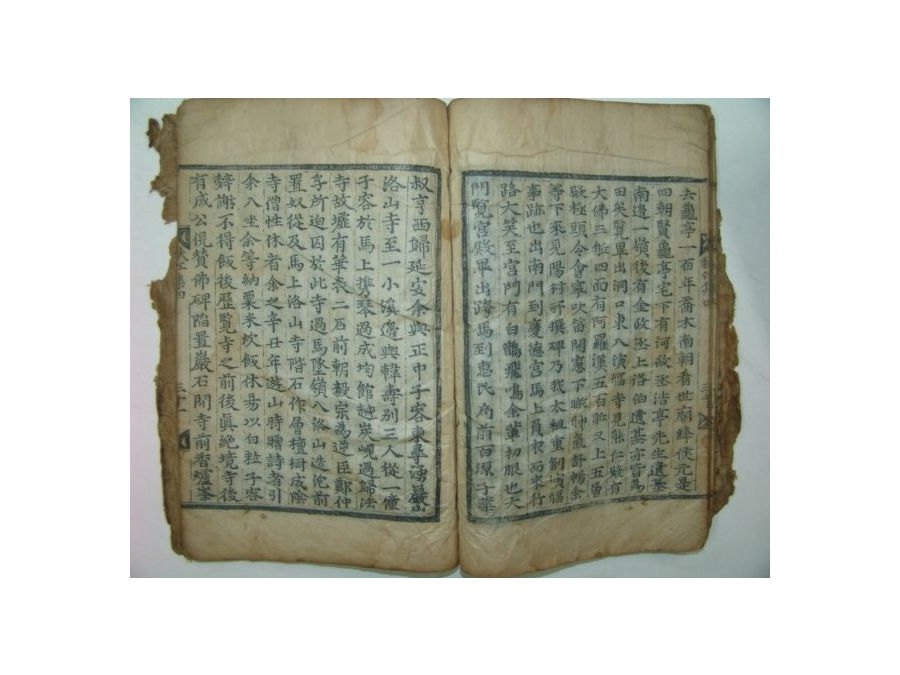 去龜亭一百年喬木南朝看世廟絳侯元是
四朝賢龜亭宅下有河政丞浩亭先生遺墓
南邊一嶺後有金政丞上洛伯遺墓亦皆為
田矣覽畢出洞口東入演福寺見能仁殿有
大佛三軀四面有阿羅漢五百軀又上五層
殿極頭令會寧吹笛開窓下瞰神氣舒暢金
等下來見陽村所撰碑乃我太祖重創演福
事跡也出南門到慶德宮馬上員衣而來行
路大笑至宮門有白鵲飛鳴金輩初服也大
門覽宮殿畢出跨馬到惠民局前百源子華
叔亨西歸延安余與正中子容東尋涌巖
洛山寺至一小溪邊與韓壽別三人從一僮
子容於馬上携琴過成均館越炭峴過歸法
寺故墟有華表二石前朝毅宗為逆臣鄭仲
孚所迫囚於此寺過馬墜嶺入洛山造泡前
置奴從及馬上洛山寺階石作層檀樹成陰
寺僧性休者余之辛丑年遊山時贈詩者引
余入坐余等納粟米炊飯休易以白粒子容
辭謝不得飯後歷覽寺之前後真絶境寺後
有成公俔賛佛碑陷置巖石間寺前香爐峯